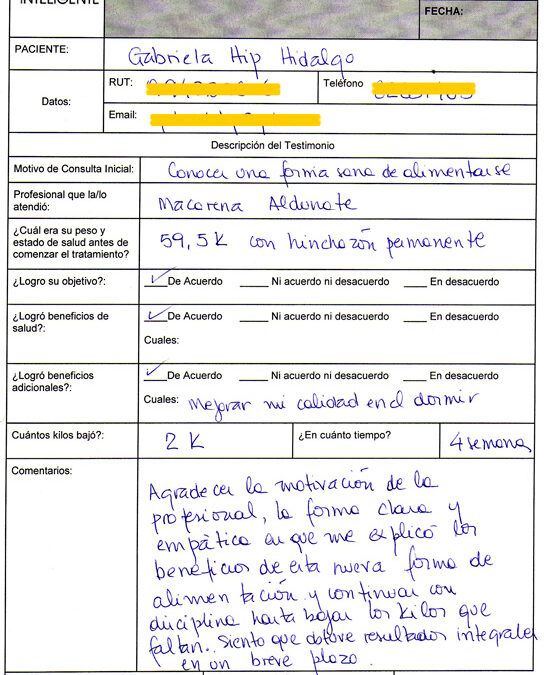 INTELIGENTE
FECHA:
PACIENTE: Gabriela Hip Hidalgo
Datos:
RUT:
Teléfono
Email:
Descripción del Testimonio
Motivo de Consulta Inicial: Conocer una forma sana de alimentarse
Profesional que la/lo
atendió:
Macarena Aldunate
¿Cuál era su peso y
estado de salud antes de
comenzar el tratamiento?
59,5 K con hinchazón permanente
¿Logro su objetivo?: De Acuerdo Ni acuerdo ni desacuerdo En desacuerdo
¿Logró beneficios de
salud?:
De Acuerdo Ni acuerdo ni desacuerdo En desacuerdo
Cuales:
¿Logró beneficios
adicionales?:
De Acuerdo Ni acuerdo ni desacuerdo En desacuerdo
Cuales: Mejorar mi calidad en el dormir
Cuántos kilos bajó?: 2 K ¿En cuánto tiempo?: 4 semanas
Comentarios:
Agradecer la motivación de la
profesional, la forma clara y
empática en que me explicó los
beneficios de esta nueva forma de
alimentación y continuar con
disciplina hasta bajar los kilos que
faltan. Siento que obtuve resultados integrales
en un breve plazo.